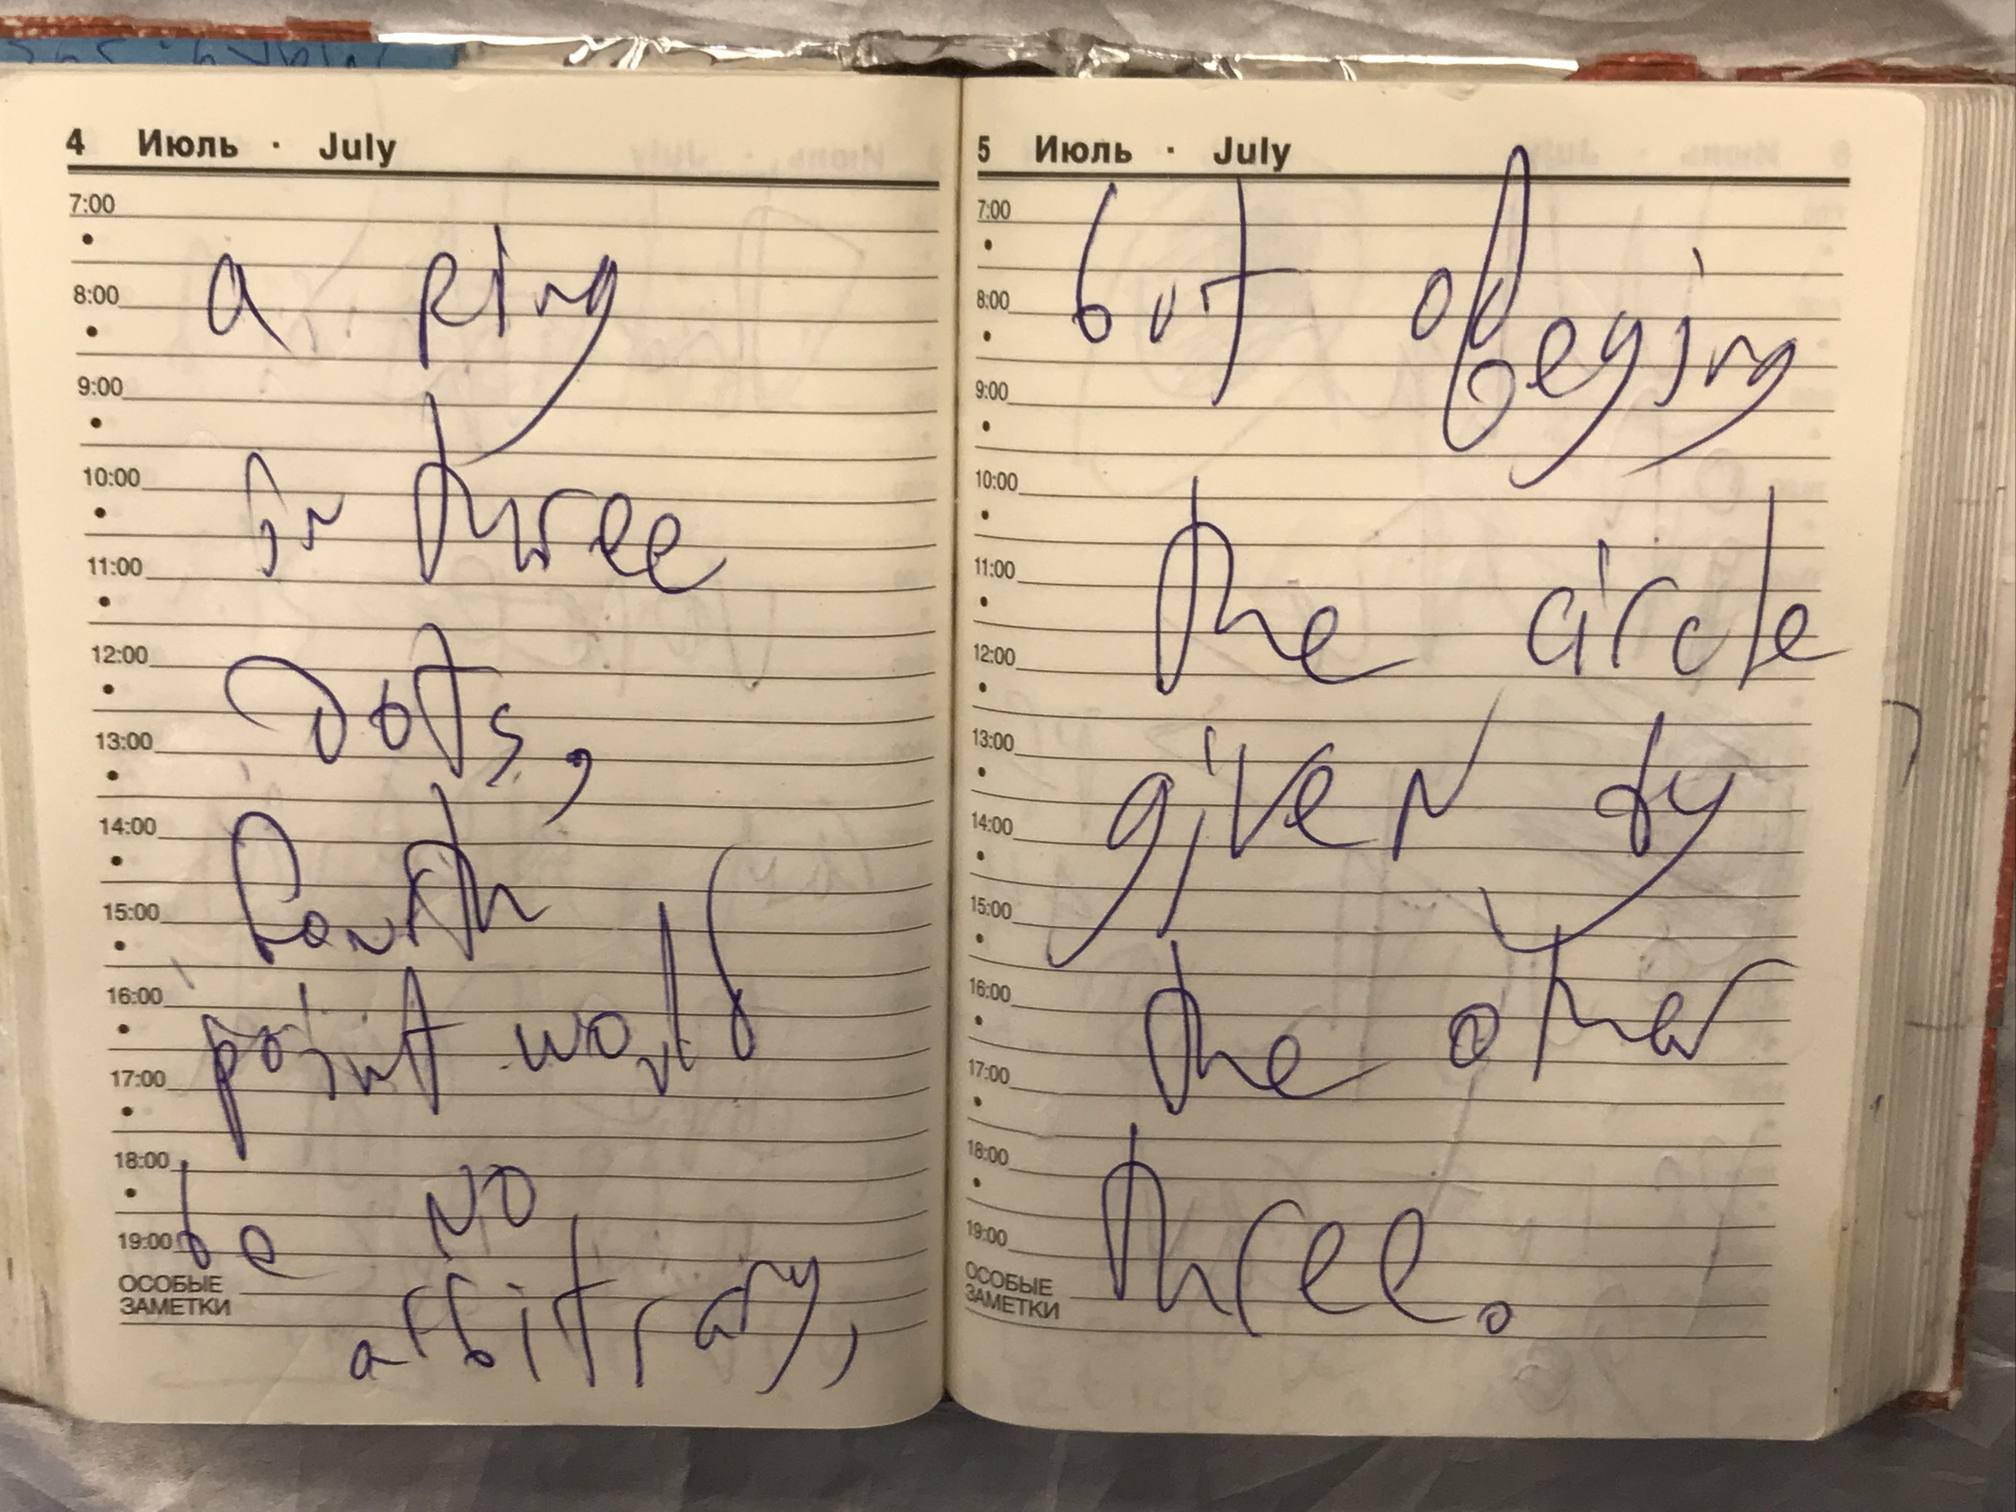 4 Июль · July
7:00
8:00
9:00
10:00
11:00
12:00
13:00
14:00
15:00
16:00
17:00
18:00
19:00
ОСОБЫЕ
ЗАМЕТКИ
a ring
in three
Dots,
point would
be no
arbitrary,
5 Июль · July
7:00
8:00
9:00
10:00
11:00
12:00
13:00
14:00
15:00
16:00
17:00
18:00
19:00
ОСОБЫЕ
ЗАМЕТКИ
but
the circle
given by
the other
three.